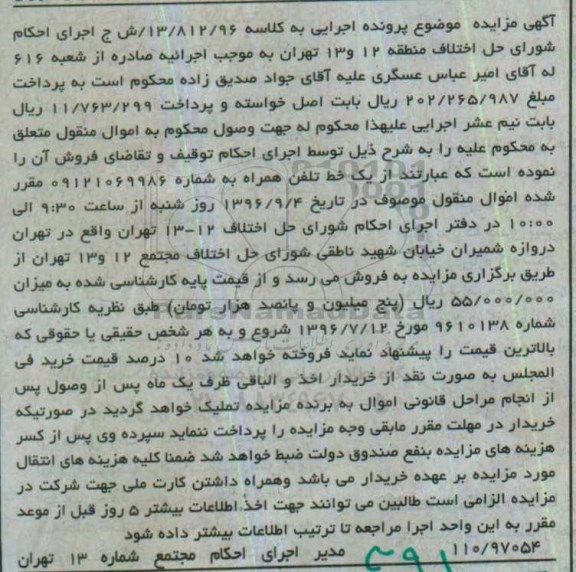 آگهی مزایده موضوع پرونده اجرایی به کلاسه ۱۳/۸۱۲/۹۶/ش ح اجرای احکام
شورای حل اختلاف منطقه ۱۲ و۱۳ تهران به موجب اجرائیه صادره از شعبه ۶۱۶
له آقای امیر عباس عسگری علیه آقای جواد صدیق زاده محکوم است به پرداخت
مبلغ ۲۰۲/۲۶۵/۹۸۷ ریال بابت اصل خواسته و پرداخت ۱۱/۷۶۳/۲۹۹ ریال
بابت نیم عشر اجرایی علیهذا محکوم له جهت وصول محکوم به اموال منقول متعلق
به محکوم علیه را به شرح ذیل توسط اجرای احکام توقیف و تقاضای فروش آن را
نموده است که عبارتند از یک خط تلفن همراه به شماره ۰۹۱۲۱۰۶۹۹۸۶ مقرر
شده اموال منقول موصوف در تاریخ ۱۳۹۶/۹/۴ روز شنبه از ساعت ۹:۳۰ الی
۱۰:۰۰ در دفتر اجرای احکام شورای حل اختلاف ۱۲-۱۳ تهران واقع در تهران
دروازه شمیران خیابان شهید ناطقی شورای حل اختلاف مجتمع ۱۲ و۱۳ تهران از
طریق برگزاری مزایده به فروش می رسد و از قیمت پایه کارشناسی شده به میزان
۵۵/۰۰۰/۰۰۰ ریال (پنج میلیون و پانصد هزار تومان) طبق نظریه کارشناسی
شماره ۹۶۱۰۱۳۸ مورخ ۱۳۹۶/۷/۱۲ شروع و به هر شخص حقیقی یا حقوقی که
بالاترین قیمت را پیشنهاد نماید فروخته خواهد شد ۱۰ درصد قیمت خرید فی
المجلس به صورت نقد از خریدار اخذ و الباقی ظرف یک ماه پس از وصول پس
از انجام مراحل قانونی اموال به برنده مزایده تملیک خواهد گردید در صورتیکه
خریدار در مهلت مقرر مابقی وجه مزایده را پرداخت ننماید سپرده وی پس از کسر
هزینه های مزایده بنفع صندوق دولت ضبط خواهد شد ضمنا کلیه هزینه های انتقال
مورد مزایده بر عهده خریدار می باشد وهمراه داشتن کارت ملی جهت شرکت در
مزایده الزامی است طالبین می توانند جهت اخذ اطلاعات بیشتر ۵ روز قبل از موعد
مقرر به این واحد اجرا مراجعه تا ترتیب اطلاعات بیشتر داده شود
۱۱۰/۹۷۰۵۴ مدیر اجرای احکام مجتمع شماره ۱۳ تهران